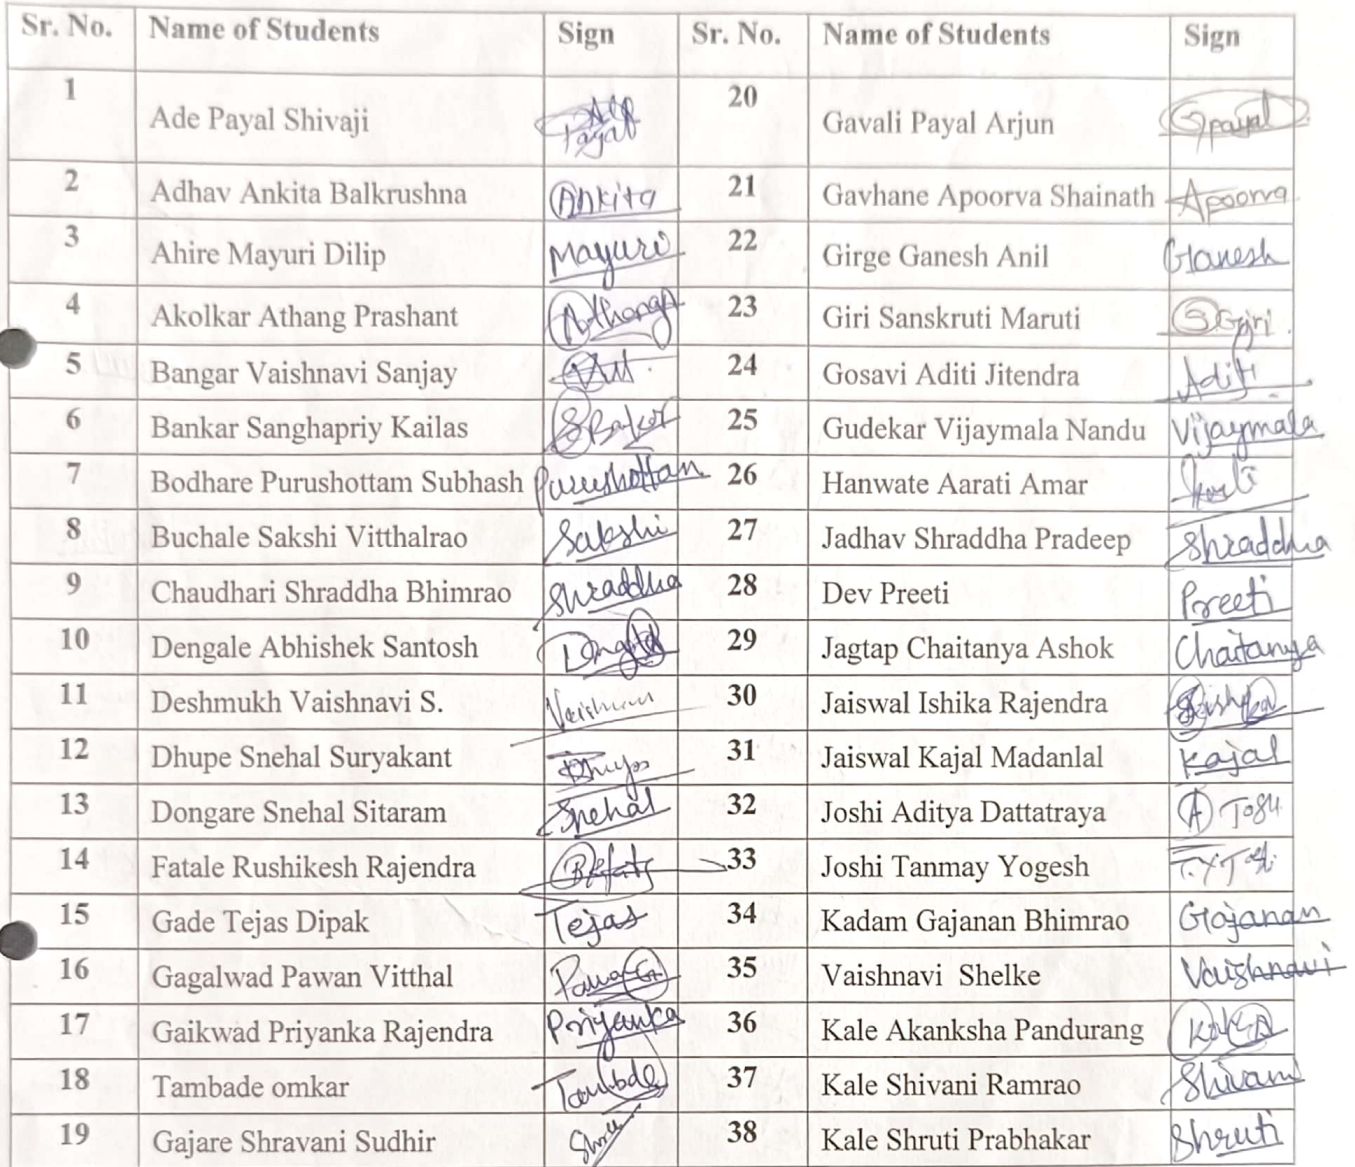 Sr. No. Name of Students Sign Sr. No. Name of Students Sign
1 Ade Payal Shivaji Payal 20 Gavali Payal Arjun Gpayal
2 Adhav Ankita Balkrushna Ankita 21 Gavhane Apoorva Shainath Apoorva
3 Ahire Mayuri Dilip Mayuri 22 Girge Ganesh Anil Ganesh
4 Akolkar Athang Prashant Athang 23 Giri Sanskruti Maruti SGiri
5 Bangar Vaishnavi Sanjay 24 Gosavi Aditi Jitendra Aditi
6 Bankar Sanghapriy Kailas 25 Gudekar Vijaymala Nandu Vijaymala
7 Bodhare Purushottam Subhash Purushottam 26 Hanwate Aarati Amar
8 Buchale Sakshi Vitthalrao Sakshi 27 Jadhav Shraddha Pradeep Shraddha
9 Chaudhari Shraddha Bhimrao Shraddha 28 Dev Preeti Preeti
10 Dengale Abhishek Santosh 29 Jagtap Chaitanya Ashok Chaitanya
11 Deshmukh Vaishnavi S. 30 Jaiswal Ishika Rajendra
12 Dhupe Snehal Suryakant 31 Jaiswal Kajal Madanlal Kajal
13 Dongare Snehal Sitaram Snehal 32 Joshi Aditya Dattatraya
14 Fatale Rushikesh Rajendra 33 Joshi Tanmay Yogesh
15 Gade Tejas Dipak Tejas 34 Kadam Gajanan Bhimrao Gajanan
16 Gagalwad Pawan Vitthal 35 Vaishnavi Shelke Vaishnavi
17 Gaikwad Priyanka Rajendra Priyanka 36 Kale Akanksha Pandurang
18 Tambade omkar Tambade 37 Kale Shivani Ramrao Shivani
19 Gajare Shravani Sudhir 38 Kale Shruti Prabhakar Shruti